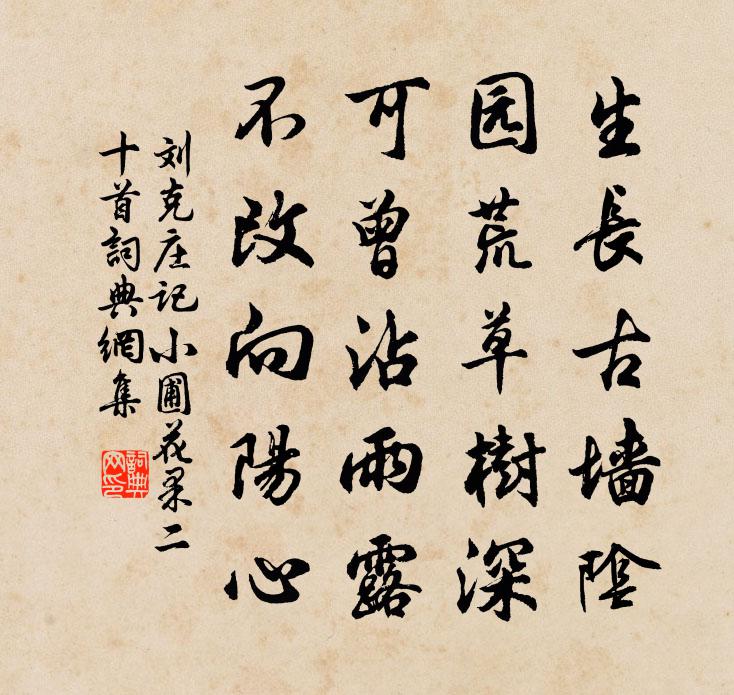 生長古墙陰
园荒草樹深
可曾沾雨露
不改向陽心
刘克庄记小圃花果二
十首詞典網集
詞典
网印